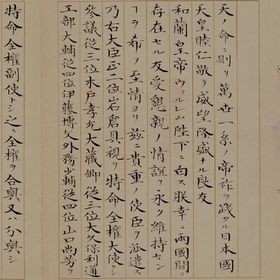 天ノ命ニ則リ萬世一系ノ帝祚ヲ踐タル日本國
天皇睦仁敬テ威望隆盛ナル良友
和蘭皇帝ウルレム陛下ニ白ス朕幸ニ兩國間ニ
存在セル友愛懇親ノ情誼ヲ永ク維持セン
ヿヲ希フノ至情ヨリ茲ニ貴重ノ使臣ヲ派遣ス
乃右大臣正二位岩倉具視ヲ特命全權大使トシ
參議從三位木戶孝允大藏卿從三位大久保利通
工部大輔從四位伊藤博文外務少輔從四位山口尚芳ヲ
特命全權副使トシ之ニ全權ヲ合與又分與シ